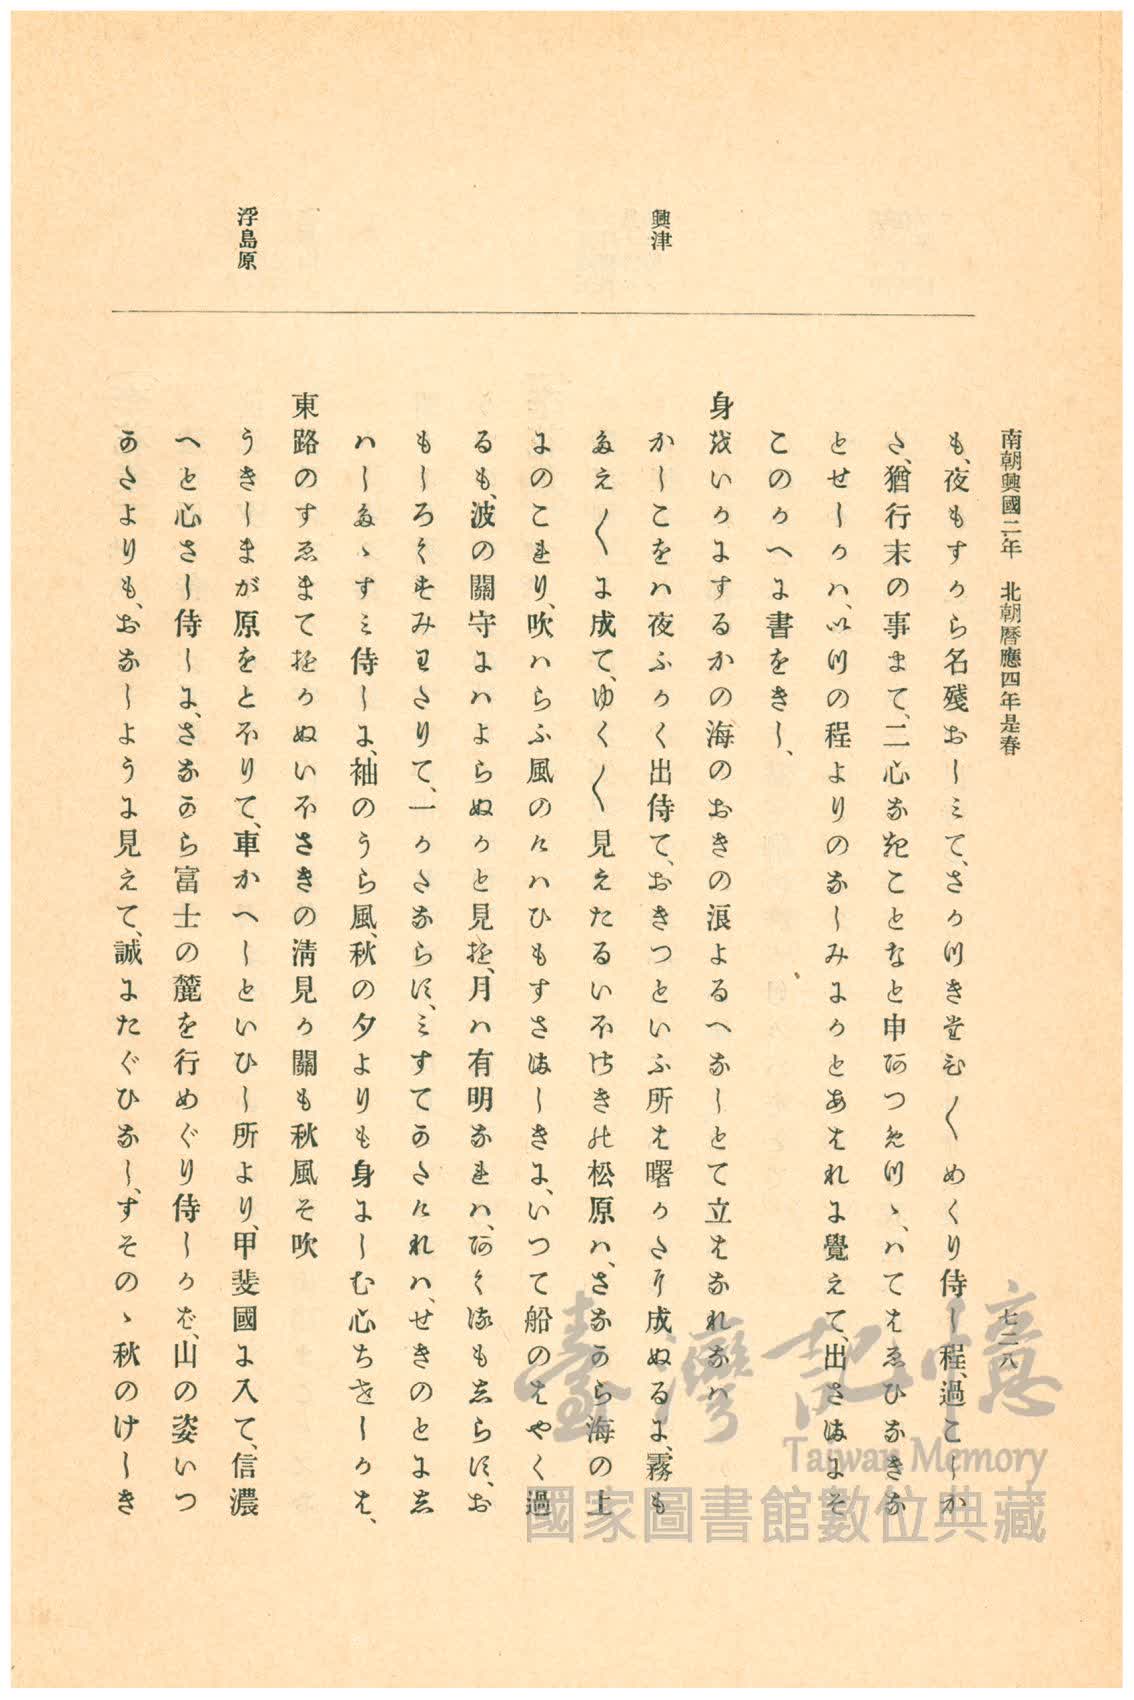 南朝興國二年　北朝曆應四年是春
七二八
も、夜もすから名殘おしミて、さかつきたひ〱めくり侍し程、過こしか
た、猶行末の事まて、二心なきことなと申あつめつゝ、ハてはゑひなきな
とせしかハ、いつの程よりのなしみにかとあはれに覺えて、出さまにそ
このかへに書をきし、
身をいかにするかの海のおきの浪よるへなしとて立はなれなハ
興津
かしこをハ夜ふかく出侍て、おきつといふ所は曙かたに成ぬるに、霧も
たえ〱に成て、ゆく〱見えたるいほさきの松原ハ、さなから海の上
にのこれり、吹ハらふ風のけハひもすさましきに、いつて船のはやく過
るも、波の關守にハよらぬかと見ゆ、月ハ有明なれハ、あくるもしらす、お
もしろくすみわたりて、一かたならす、ミすてかたけれハ、せきのとにし
ハしたゝすミ侍しに、袖のうら風、秋の夕よりも身にしむ心ちせしかは、
東路のすゑまてゆかぬいほさきの淸見か關も秋風そ吹
浮島原
うきしまが原をとほりて、車かへしといひし所より、甲斐國に入て、信濃
へと心さし侍しに、さなから富士の麓を行めぐり侍しかば、山の姿いつ
かたよりも、おなしように見えて、誠にたぐひなし、すそのゝ秋のけしき
臺灣記憶
Taiwan Memory
國家圖書館數位典藏